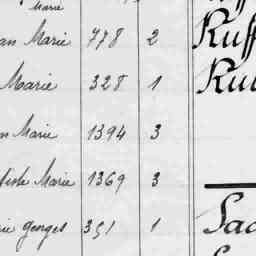 Marie
an Marie 778 2 Ruff
Marie 328 1 Ru
n Marie 1394 3
tiste Marie 1369 3
rie georges 351 1 Sac